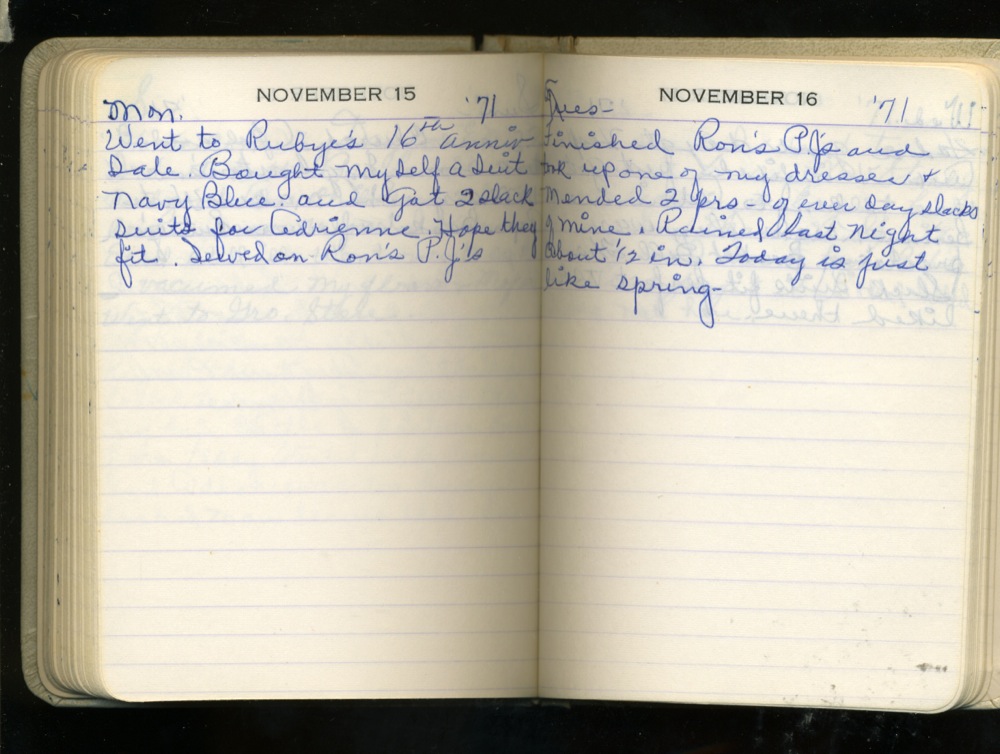 NOVEMBER 15
Mon. '71
Went to Rubye's 16th anniv
Sale. Bought myself a Suit
Navy Blue. and Got 2 slack
suits for Adrienne. Hope they
fit. Sewed on Ron's P.J.'s
NOVEMBER 16
Tues- '71
Finished Ron's P.J's and
up one of my dresses &
Mended 2 prs- of ever day slacks
of mine. Rained last night
About 1/2 in. Today is just
like spring-